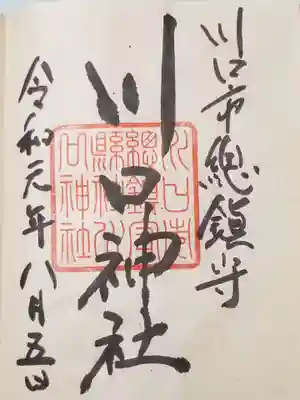 川口市總鎮守
川口神社
令和元年八月五日